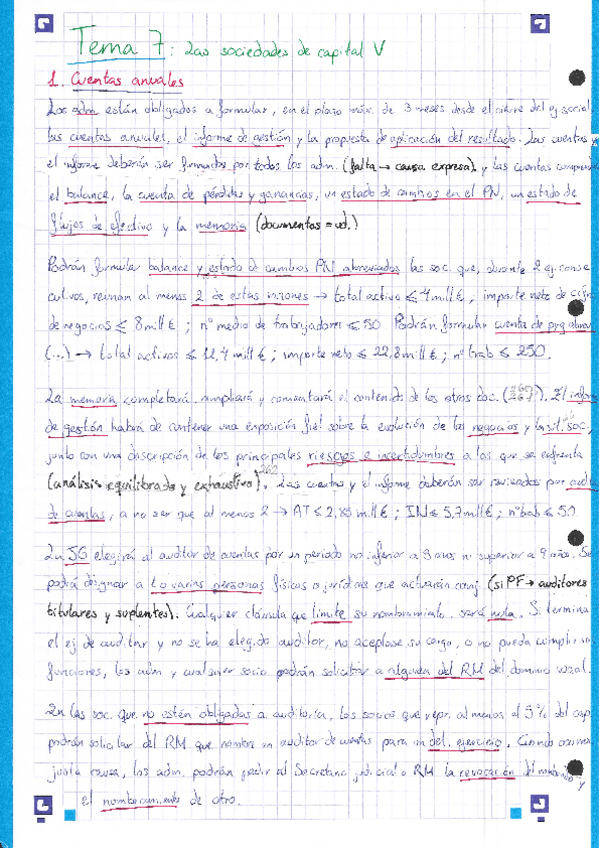 Tema 7: Las sociedades de capital V
1. Cuentas anuales
Los adm. están obligados a formular, en el plazo máx. de 3 meses desde el cierre del ej. social
las cuentas anuales, el informe de gestión y la propuesta de aplicación del resultado. Las cuentas y
el informe deberán ser firmados por todos los adm. (falta → causa expresa) y las cuentas comprende
el balance, la cuenta de pérdidas y ganancias, un estado de cambios en el PN, un estado de
flujos de efectivo y la memoria (documentos = ud.)
Podrán formular balance y estado de cambios PN abreviados las soc. que, durante 2 ej. conse
cutivos, reúnan al menos 2 de estas razones → total activo ≤ 4 mill €; importe neto de cifra
de negocios ≤ 8 mill €; nº medio de trabajadores ≤ 50. Podrán formular cuenta de pyg abrev
(...) → total activos ≤ 11,4 mill €; importe neto ≤ 22,8 mill €; nº trab ≤ 250.
La memoria completará, ampliará y comentará el contenido de los otros doc. El inform
de gestión habrá de contener una exposición fiel sobre la evolución de los negocios y la sit. soc.,
junto con una descripción de los principales riesgos e incertidumbres a los que se enfrenta
(análisis equilibrado y exhaustivo). 262 Las cuentas y el informe deberán ser revisados por audit
de cuentas, a no ser que al menos 2 → AT ≤ 2,85 mill €; IN ≤ 5,7 mill €; nº trab ≤ 50
La JG elegirá al auditor de cuentas por un periodo no inferior a 3 años ni superior a 9 años. Se
podrá designar a 1 o varias personas físicas o jurídicas que actuarán conj (si PF → auditores
titulares y suplentes). Cualquier cláusula que limite su nombramiento será nula. Si termina
el ej. de auditar y no se ha elegido auditor, no aceptase su cargo, o no pueda cumplir sus
funciones, los adm y cualquier socio podrán solicitar a alguien del RM del domicilio social.
En las soc. que no estén obligadas a auditoría, los socios que repr. al menos el 5% del cap
podrán solicitar del RM que nombre un auditor de cuentas para un det. ejercicio. Cuando
justa causa, los adm. podrán pedir al Secretario judicial o RM la revocación del nombrado y
el nombramiento de otro.